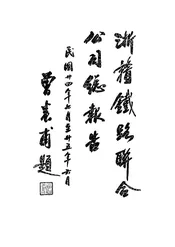 浙贛鐵路聯合
公司總報告
民國廿四年七月至廿五年六月
曾養甫題